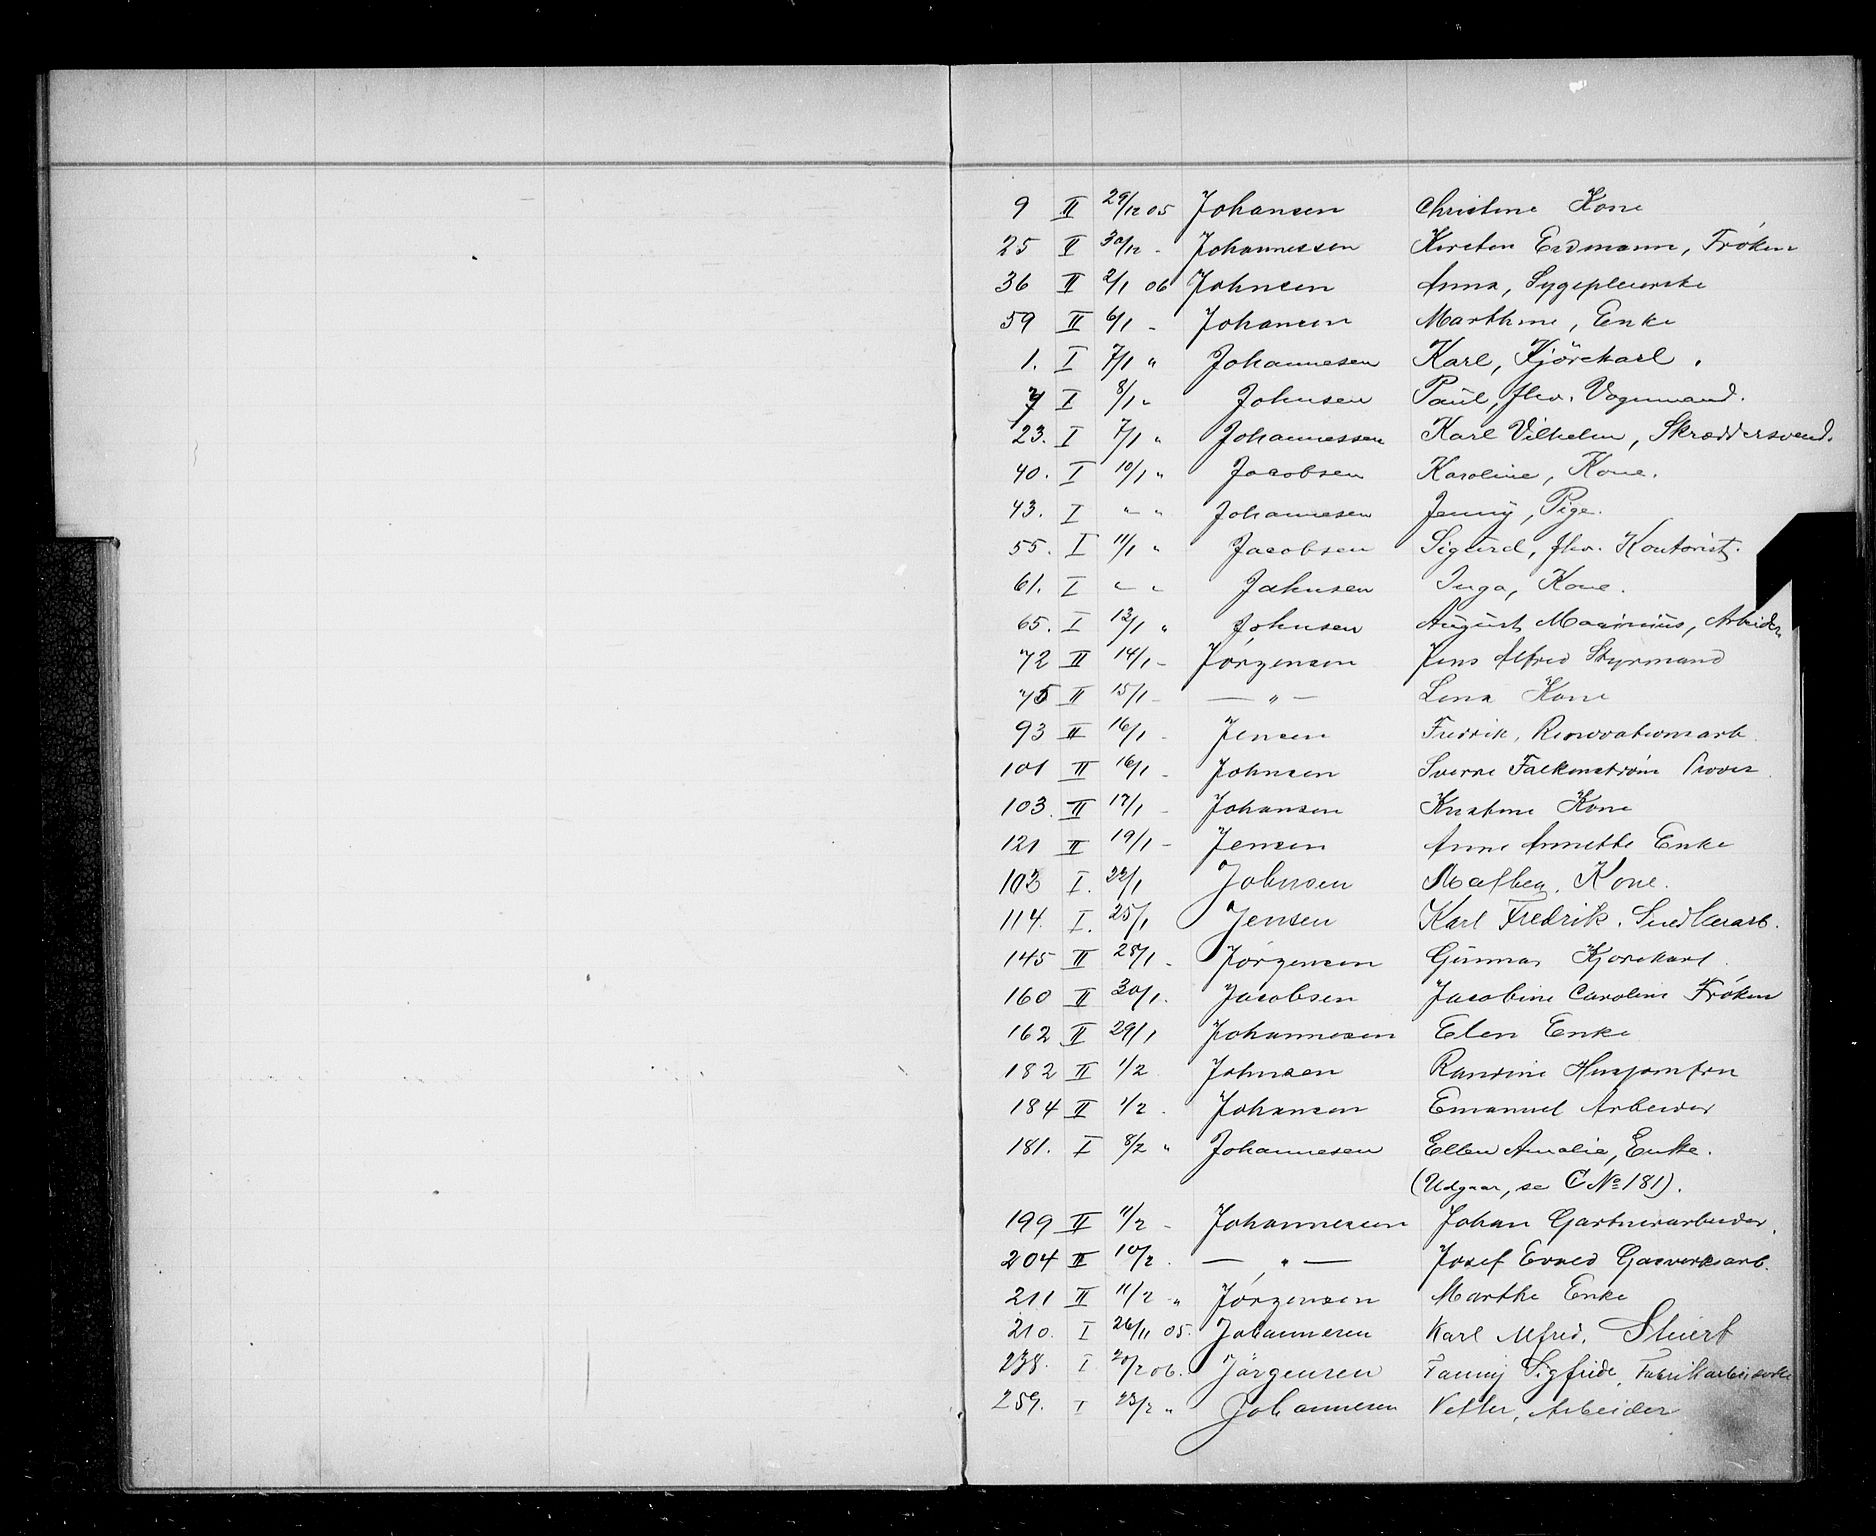 9 II 29/12 05 Johansen Christine Kone
25 II 30/12 - Johannessen Kirsten Erdmann, Frøken
36 II 2/1 06 Johnsen Anna, Sygepleierske
59 II 6/1 - Johansen Marthine, Enke
1. I 7/1 " Johannesen Karl, Kjörekarl.
7 I 8/1 " Johnsen Paul, fhv. Vognmand.
23. I 7/1 " Johannessen Karl Vilhelm, Skræddersvend.
40. I 10/1 " Jacobsen Karoline, Kone.
43. I " " Johannesen Jenny, Pige.
55. I 11/1 " Jacobsen Sigurd, fhv. Kontorist.
61. I " " Johnsen Inga, Kone.
65. I 13/1 " Johnsen August Maximius, Arbeider
72 II 14/1 - Jørgensen Jens Alfred Styrmand
75 II 15/1 - — " — Lena Kone
93 II 16/1 - Jensen Fredrik, Renovationsarb.
101 II 16/1 - Johnsen Sverre Falkenstrøm
103. II 17/1 - Johansen Kristine Kone
121 II 19/1 - Jensen Anne Annette Enke
103 I. 22/1 Johnsen Kone.
114. I. 25/1 Jensen Karl Fredrik.
145 II 28/1 - Jørgensen Gunnar Kjørekarl.
160 II 30/1. Jacobsen Jacobine Caroline Frøken
162 II 29/1 Johannesen Elen Enke
182 II 1/2 Johnsen Randine Husjomfru
184 II 1/2. Johansen Emanuel Arbeider
181. I 8/2 " Johannesen Ellen Amalie, Enke.
(Udgaar, se C No 181).
199 II 11/2 - Johannesen Johan Gartnerarbeider.
204 II 10/2. — " — Josef Gasverksarb.
211 II 11/2 " Jørgensen Marthe Enke
210. I 26/11 05. Johannesen Karl Alfred.
238. I 20/2 06. Jörgensen Fanny Sigfride, Fabrikarbeiderske
259. I 23/2 " Johannesen Arbeider